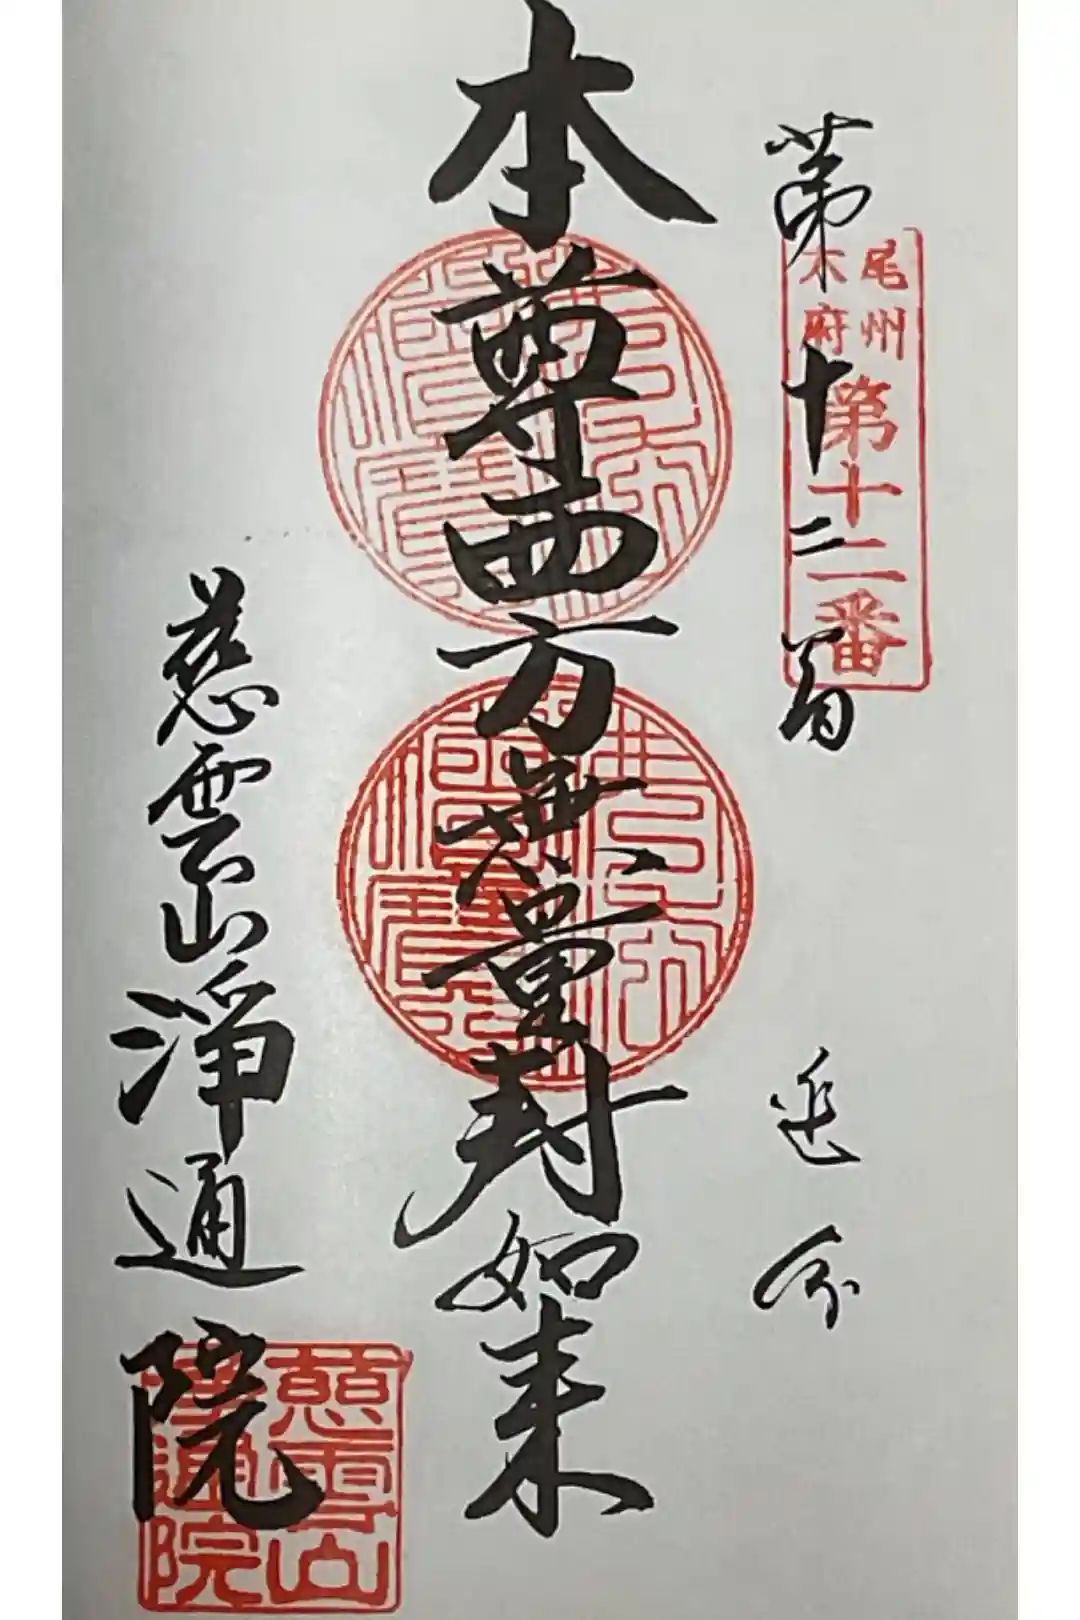 尾州
大府
第十二番
第十二番 延命
本尊西方無量寿如来
慈雲山淨通院
慈雲山
淨通院